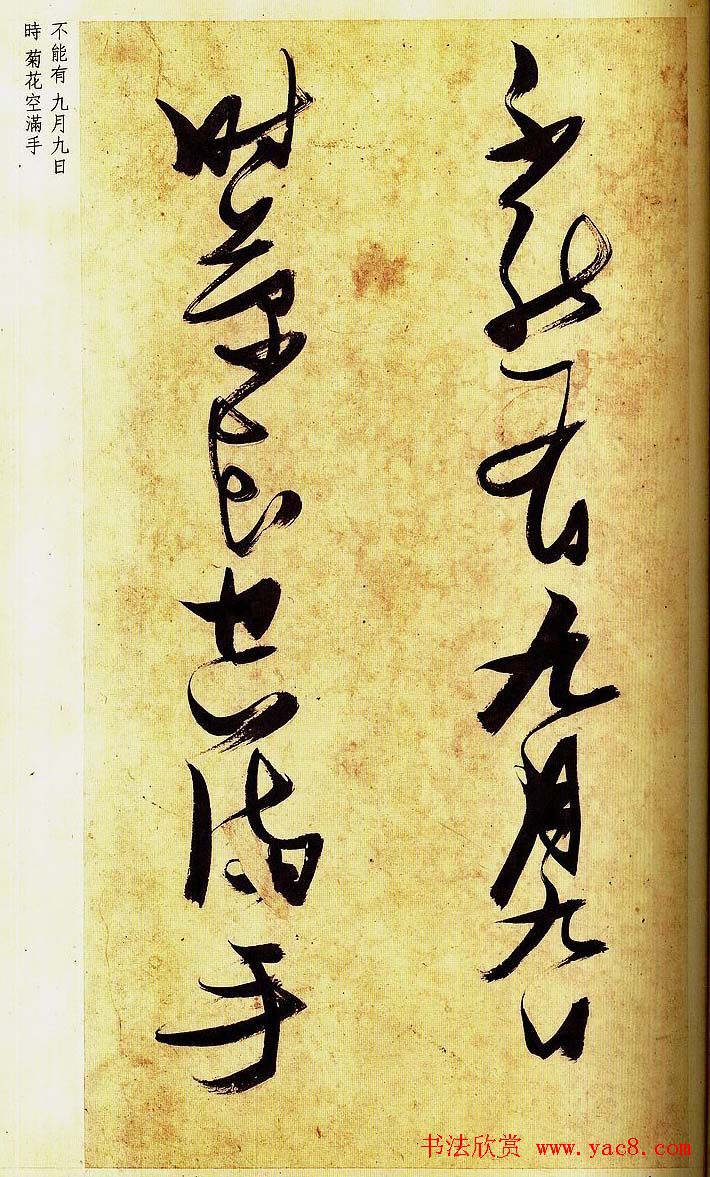 不能有九月九日
時菊花空滿手
不能有 九月九日
時 菊花空滿手
书法欣赏 www.yac8.com